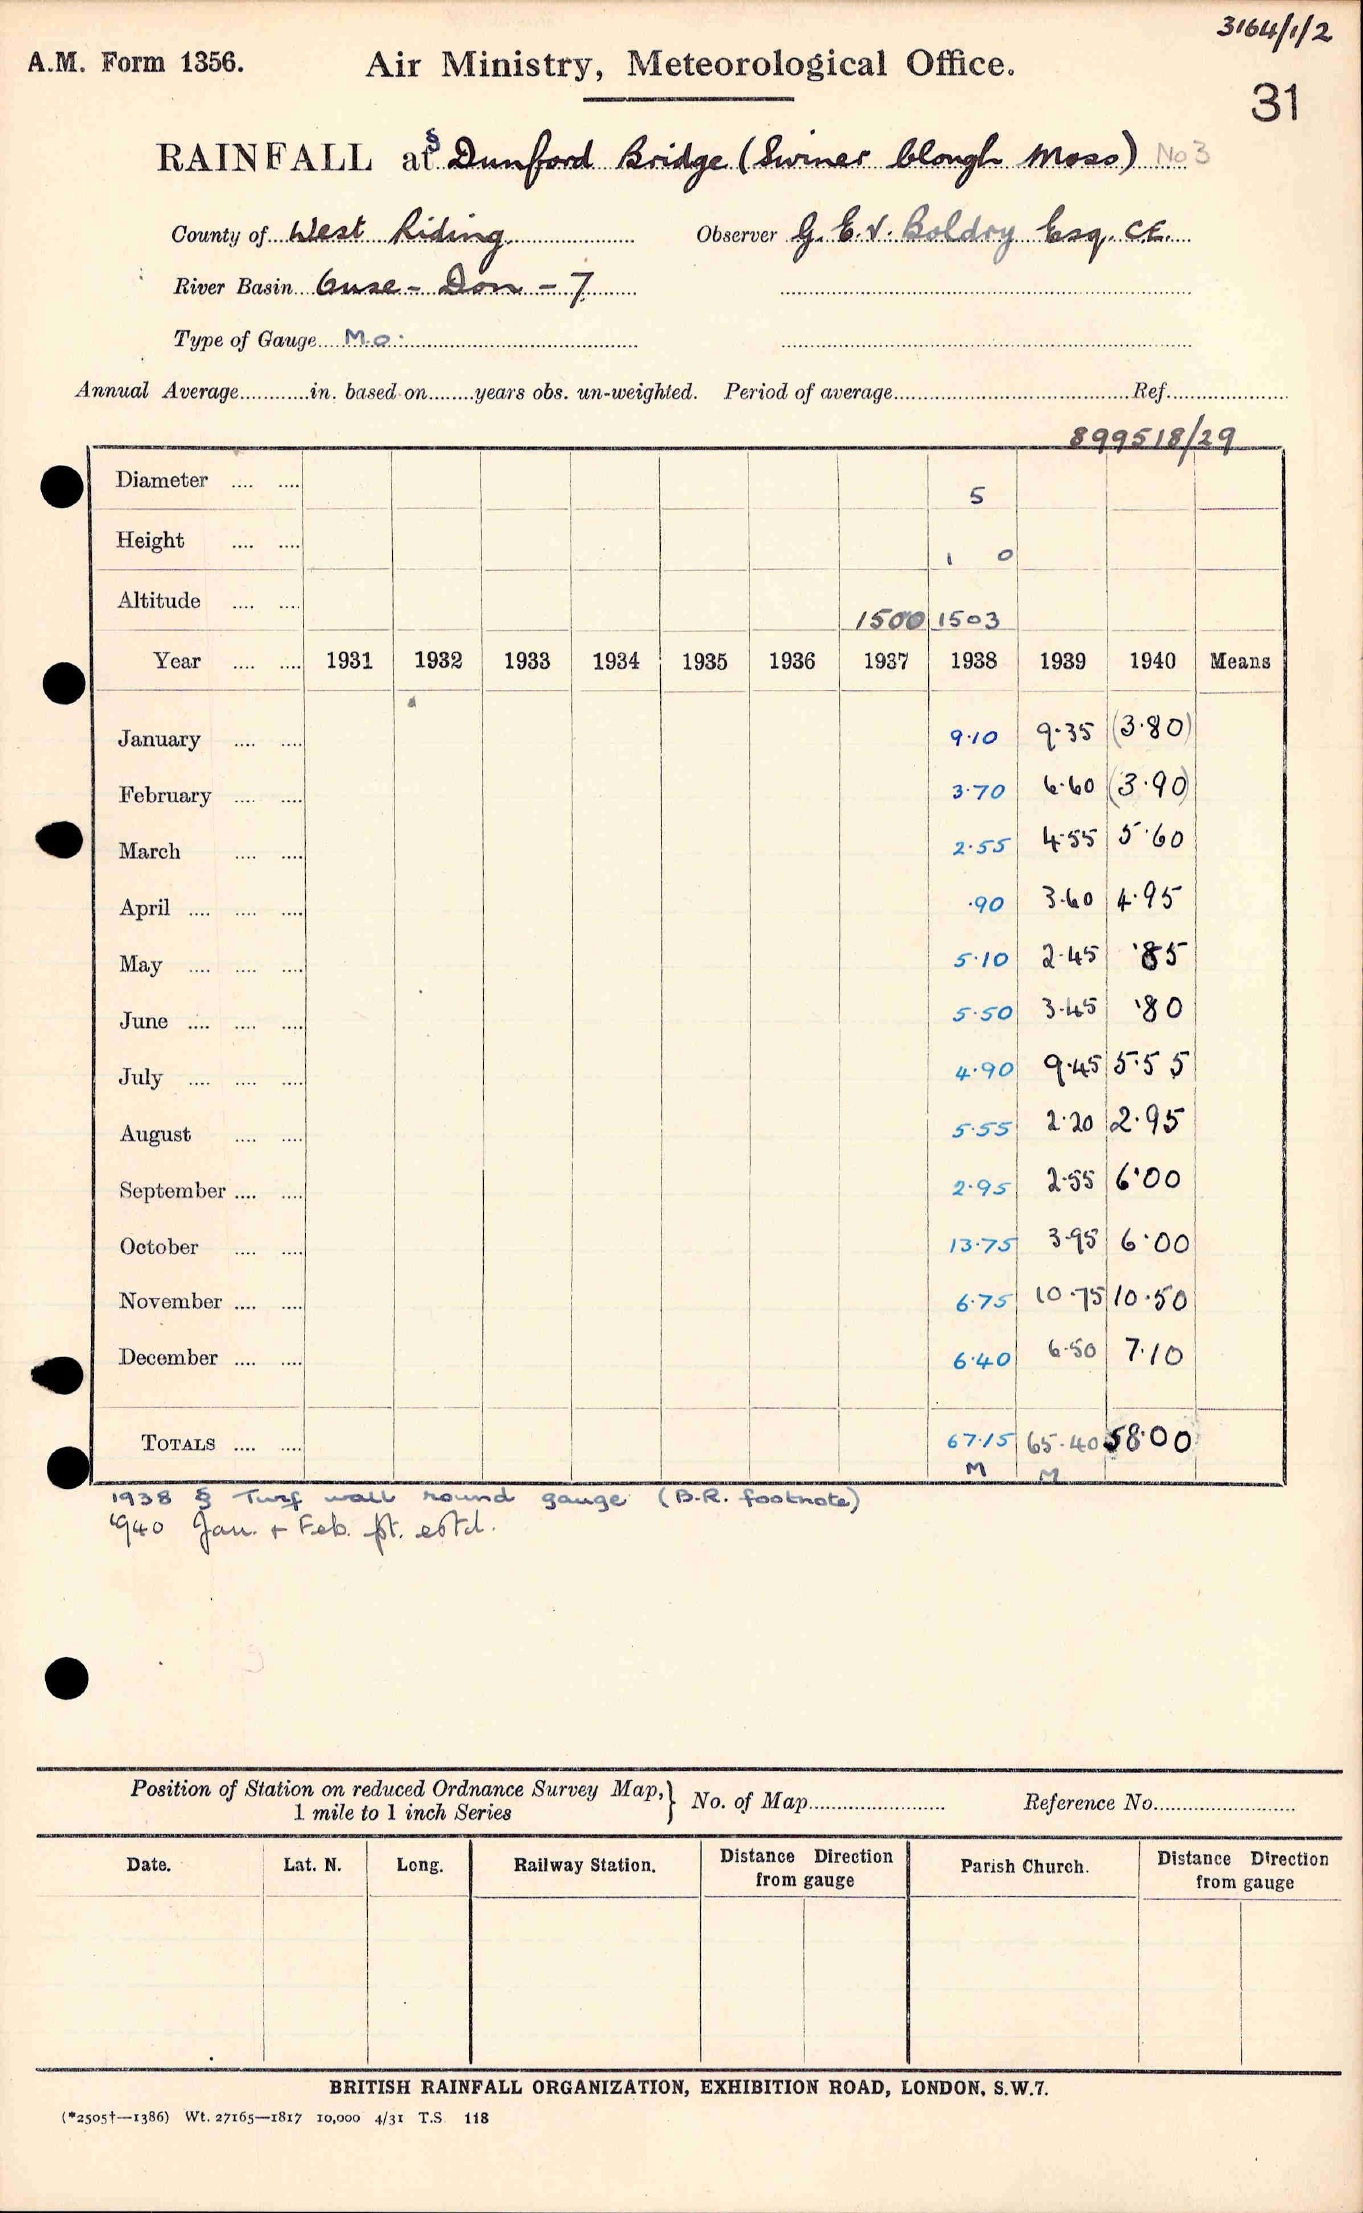 3164/1/2
A.M. Form 1356. Air Ministry, Meteorological Office.
31
RAINFALL at § Dunford Bridge (Swiner Clough Moss) No 3
County of West Riding Observer G. E. V. Boldry Esq. C.E.
River Basin Ouse - Don - 7
Type of Gauge M.O.
Annual Average............in. based on........years obs. un-weighted. Period of average........................Ref.....................
899518/29
Diameter .... .... 5
Height .... .... 1 0
Altitude .... .... 1500 1503
Year .... .... 1931 1932 1933 1934 1935 1936 1937 1938 1939 1940 Means
January .... .... 9·10 9·35 (3·80)
February .... .... 3·70 6·60 (3·90)
March .... .... 2·55 4·55 5·60
April .... .... .... ·90 3·60 4·95
May .... .... .... 5·10 2·45 ·85
June .... .... .... 5·50 3·45 ·80
July .... .... .... 4·90 9·45 5·55
August .... .... 5·55 2·20 2·95
September .... .... 2·95 2·55 6·00
October .... .... 13·75 3·95 6·00
November .... .... 6·75 10·75 10·50
December .... .... 6·40 6·50 7·10
TOTALS .... .... 67·15 65·40 58·00
M M
1938 § Turf wall round gauge (B.R. footnote)
1940 Jan. + Feb. pt. estd.
Position of Station on reduced Ordnance Survey Map, 1 mile to 1 inch Series } No. of Map........................ Reference No.........................
Date. Lat. N. Long. Railway Station. Distance Direction from gauge Parish Church. Distance Direction from gauge
BRITISH RAINFALL ORGANIZATION, EXHIBITION ROAD, LONDON, S.W.7.
(*2505†—1386) Wt. 27165—1817 10,000 4/31 T.S. 118